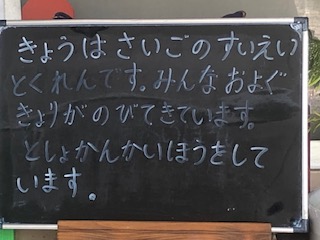 きょうはさいごのすいえい
とくれんです。みんなおよぐ
きょりがのびてきています。
としょかんかいほうをして
います。